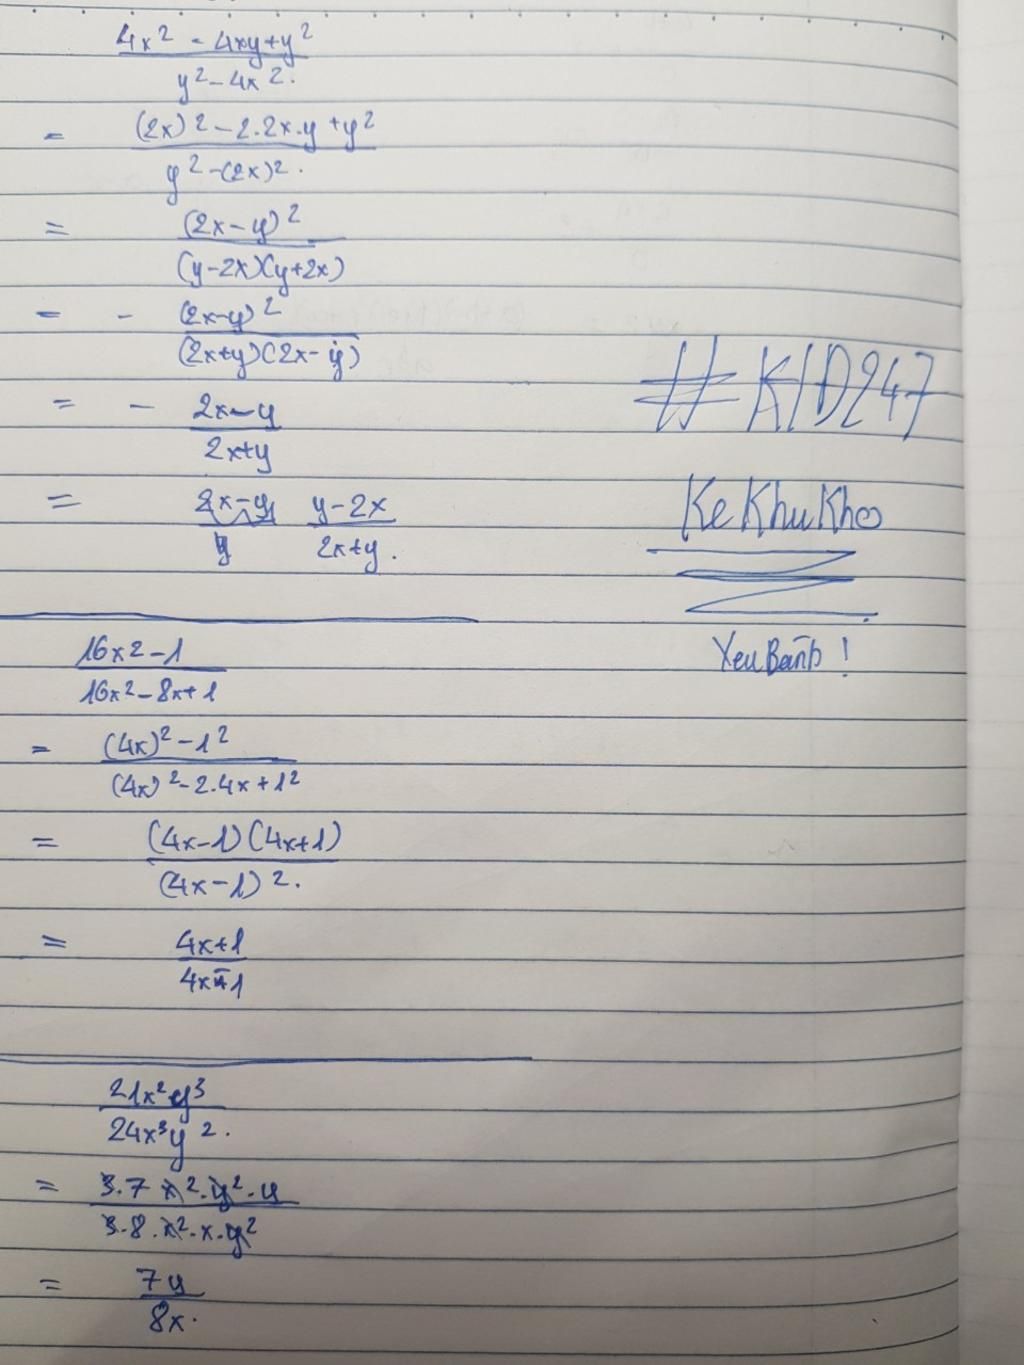 4x² - 4xy + y²
y² - 4x².
= (2x)² - 2.2x.y + y²
y² - (2x)².
= (2x - y)²
(y - 2x)(y + 2x)
= - (2x - y)²
(2x + y)(2x - y)
= - 2x - y
2x + y
= y - 2x
2x + y.
#KID247
KeKhuKho
16x² - 1
16x² - 8x + 1
= (4x)² - 1²
(4x)² - 2.4x + 1²
= (4x - 1)(4x + 1)
(4x - 1)².
= 4x + 1
4x - 1
21x²y³
24x³y².
= 3.7 x².y².y
3.8.x².x.y²
= 7y
8x.